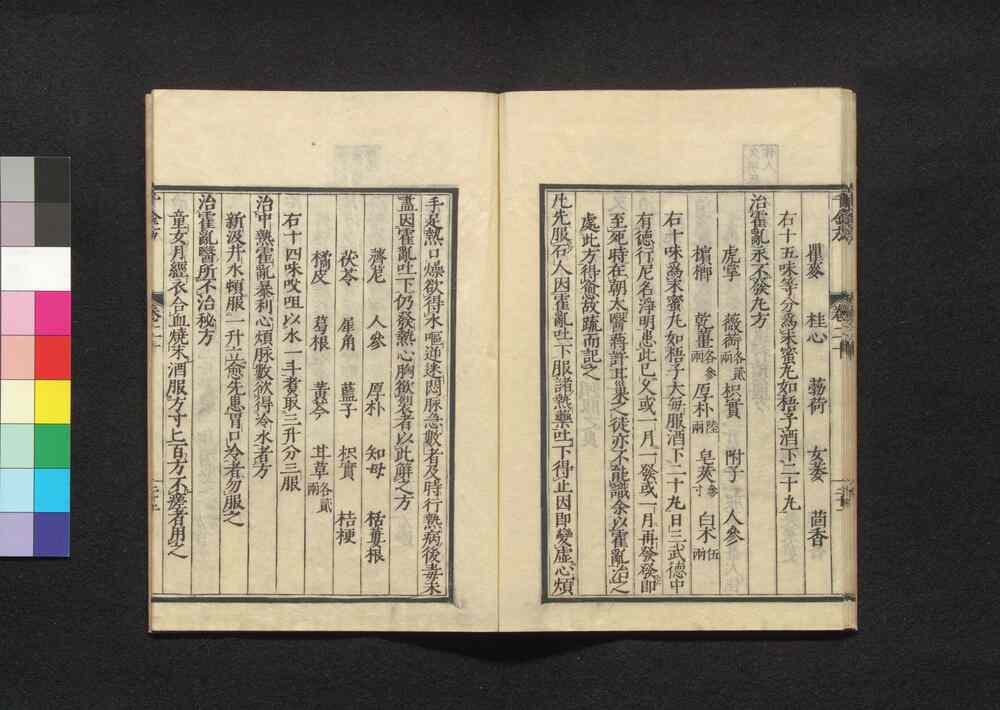 瞿麥 桂心 薄荷 女萎 茴香
右十五味等分爲末蜜丸如梧子酒下二十丸
治霍亂永不發丸方
虎掌 薇蘅各貳兩 枳實 附子 人參
檳榔 乾薑各參兩 厚朴陸兩 皂莢參寸 白朮伍兩
右十味爲末蜜丸如梧子大每服酒下二十丸日三武德中
有德行尼名淨明患此已久或一月一發或一月再發發即
至死時在朝太醫蔣許甘巢之徒亦不能識余以霍亂治之
處此方得愈故疏而記之
凡先服石人因霍亂吐下服諸熱藥吐下得止因即變虛心煩
手足熱口燥欲得水嘔逆迷悶脉急數者及時行熱病後毒未
盡因霍亂吐下仍發熱心胸欲裂者以此解之方
薺苨 人參 厚朴 知母 栝蔞根
茯苓 犀角 藍子 枳實 桔梗
橘皮 葛根 黃芩 甘草各貳兩
右十四味㕮咀以水一斗煮取三升分三服
治中熱霍亂暴利心煩脉數欲得冷水者方
新汲井水頓服一升立愈先患胃口冷者勿服之
治霍亂醫所不治秘方
童女月經衣合血燒末酒服方寸匕百方不差者用之